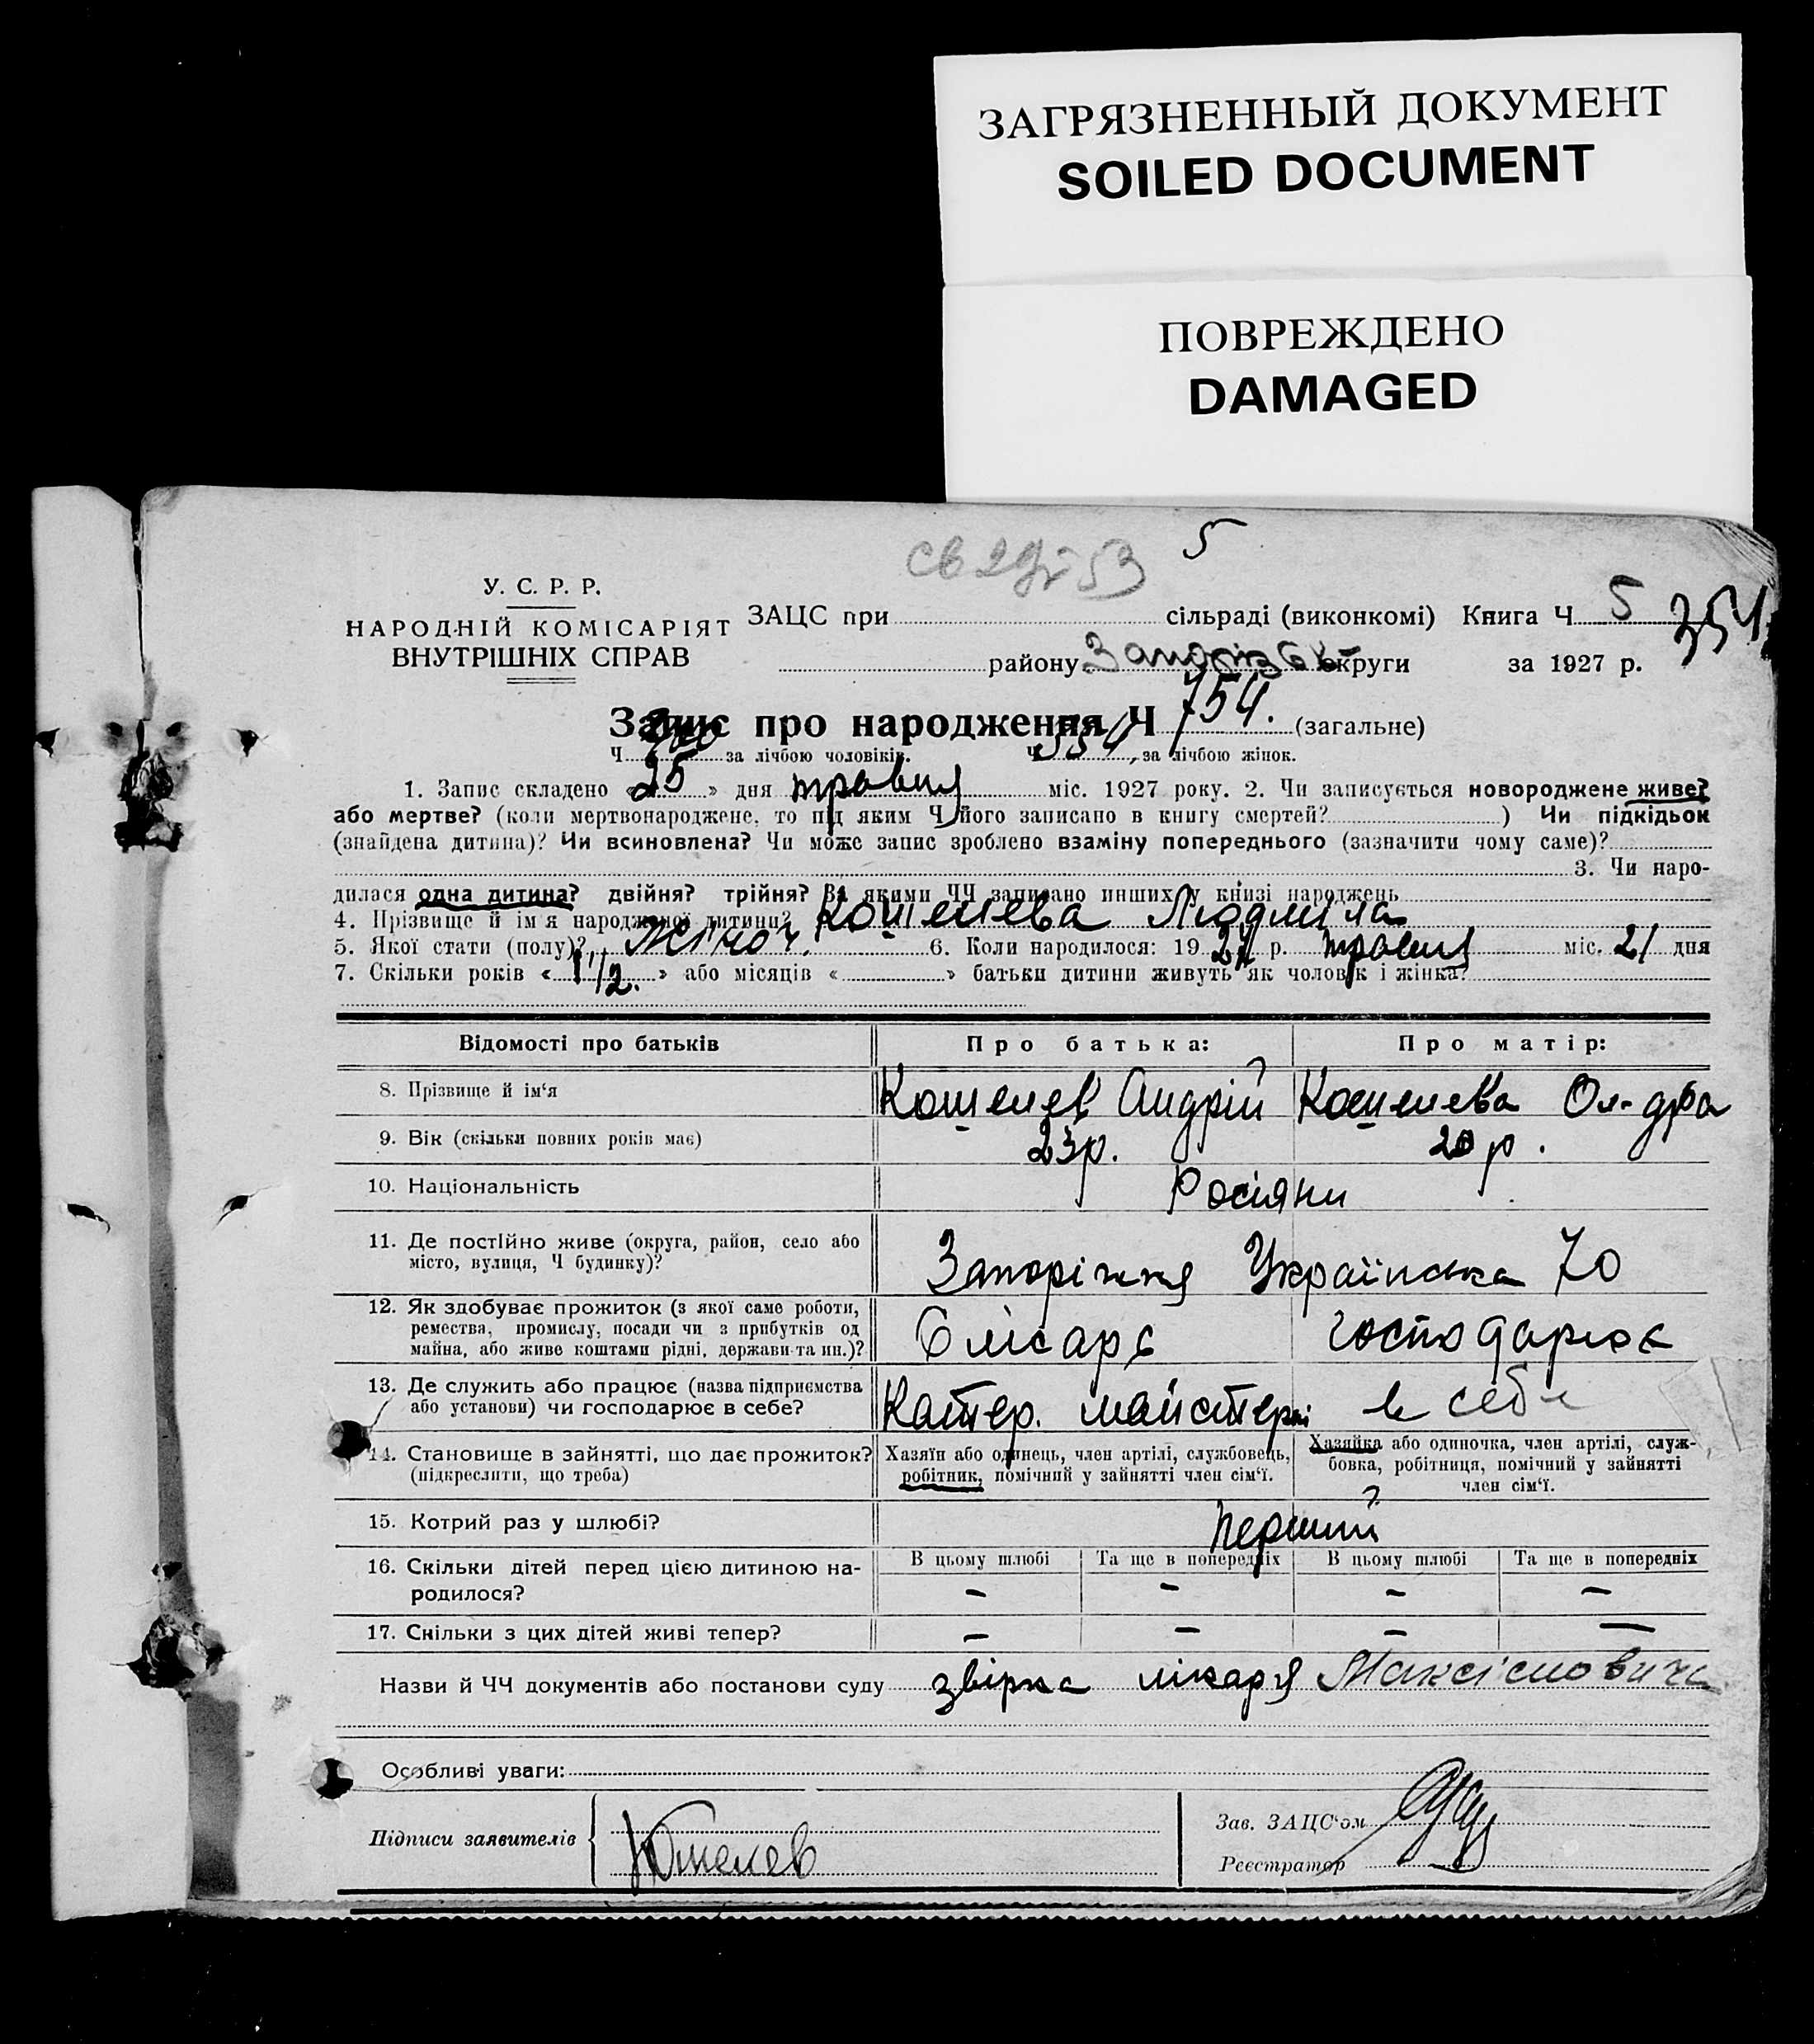 ЗАГРЯЗНЕННЫЙ ДОКУМЕНТ
SOILED DOCUMENT
ПОВРЕЖДЕНО
DAMAGED
5
св 53
У. С. Р. Р.
НАРОДНІЙ КОМІСАРІЯТ
ВНУТРІШНІХ СПРАВ
ЗАЦС при сільраді (виконкомі) Книга Ч 5 354
району округи за 1927 р.
Запис про народження Ч 754. (загальне)
Ч за лічбою чоловіків. Ч 354, за лічбою жінок.
1. Запис складено « 25 » дня травня міс. 1927 року. 2. Чи записується новороджене живе?
або мертве? (коли мертвонароджене, то під яким Ч його записано в книгу смертей? ) Чи підкідьок
(знайдена дитина)? Чи всиновлена? Чи може запис зроблено взаміну попереднього (зазначити чому саме)?
3. Чи наро-
дилася одна дитина? двійня? трійня? За якими ЧЧ записано инших у книзі народжень
4. Прізвище й ім'я народженої дитини? Кошелева Людмила
5. Якої стати (полу)? Жіноч. 6. Коли народилося: 19 27 р. травня міс. 21 дня
7. Скільки років « 1 1/2. » або місяців « » батьки дитини живуть як чоловік і жінка?
Відомості про батьків Про батька: Про матір:
8. Прізвище й ім‘я Кошелев Андрій Кошелева Ол-дра
9. Вік (скільки повних років має) 23р. 20 р.
10. Національність Росіяни
11. Де постійно живе (округа, район, село або
місто, вулиця, Ч будинку)? Запоріжжя Українська 70
12. Як здобуває прожиток (з якої саме роботи,
ремества, промислу, посади чи з прибутків од
майна, або живе коштами рідні, держави та ин.)? Слісарь господарює
13. Де служить або працює (назва підприємства
або установи) чи господарює в себе? Катер. майстерні в себе
14. Становище в зайнятті, що дає прожиток?
(підкреслити, що треба)
Хазяїн або одинець, член артілі, службовець,
робітник, помічний у зайнятті член сім‘ї.
Хазяйка або одиночка, член артілі, служ-
бовка, робітниця, помічний у зайнятті
член сім‘ї.
15. Котрий раз у шлюбі? перший
16. Скільки дітей перед цією дитиною на-
родилося?
В цьому шлюбі Та ще в попередніх В цьому шлюбі Та ще в попередніх
– – – –
17. Скільки з цих дітей живі тепер? – – – –
Назви й ЧЧ документів або постанови суду звірка лікаря Максімовича
Особливі уваги:
Підписи заявителів Кошелев
Зав. ЗАЦС‘ом
Реєстратор